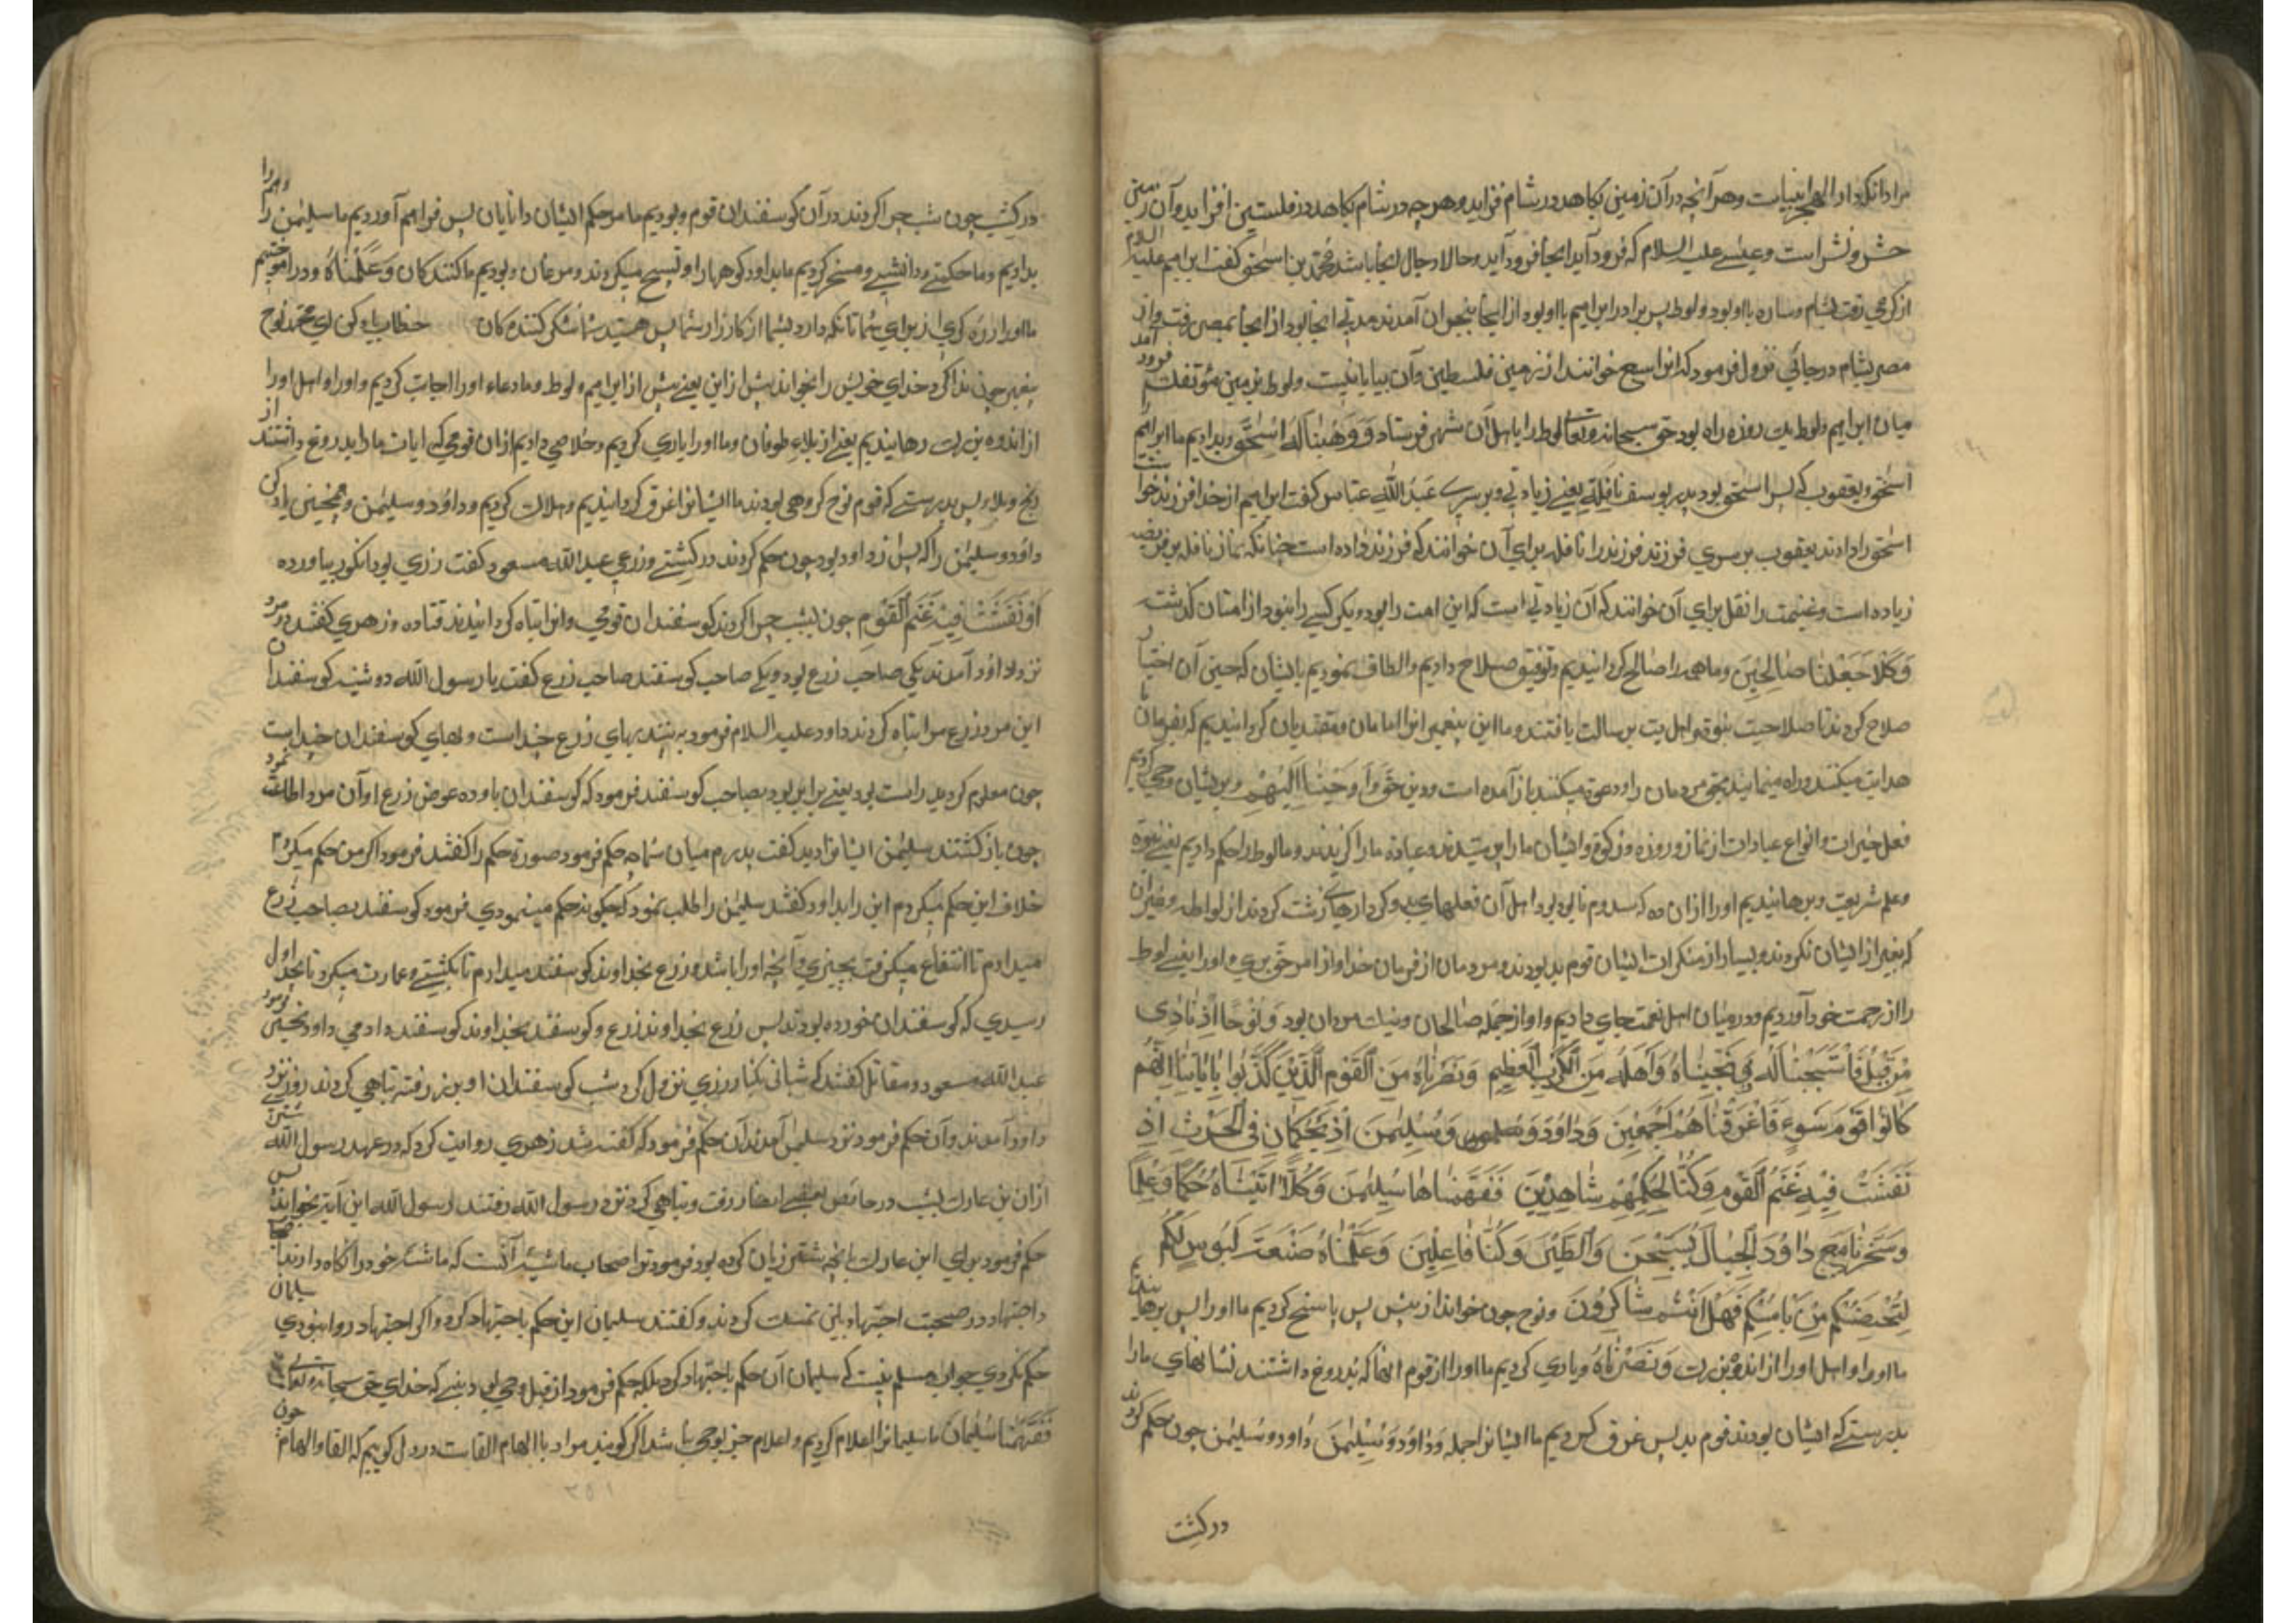 مراد انکه دار الهجر انبیاست و هر آنچه در آن زمینی بکاهد در شام فزاید و هر چه در شام بکاهد در فلسیتین افزاید و آن زمین
حشر و نشر است و عیسے علیه السلام که فرود آید انجا فرود آید و حالا دجال انجا باشد محمد بن اسحق کفت ابراهیم علیه السلام
از کوفی رفت بشام و ساره با او بود و لوط پس برادر ابراهیم با او بود از انجا بنجران آمدند مدتی انجا بود از انجا بمصر رفت و از
مصر بشام در جائی نزول فرمود که انرا سبع خوانند از زمین فلسطین و آن بیابانیست و لوط بزمین مؤتفکه فرود آمد
میان ابراهیم و لوط یک روزه راه بود حق سبحانه و تعالی لوط را باهل آن شهر فرستاد وَ وَهَبْنَا لَهُ اسْحٰق و بدادیم ما ابراهیم
اسحق و یعقوب که پسر اسحق بود پدر یوسف نَافِلَةً یعنے زیادتی و بر سرے عبد اللّه عباس کفت ابراهیم از خدا فرزند خواست
اسحق را دادند یعقوب بر سری فرزند فرزند را نافله برای آن خوانند که فرزند زاده است چنانکه نماز نافله بر فریضه
زیاده است و غنیمت را نفل برای آن خوانند که آن زیادتی است که این امت را بود و دیکر کسے را نبود از امتان کذشته
وَکُلّاً جَعَلْنَا صَالِحِینَ و ما همه را صالح کردانیدیم و توفیق صلاح دادیم و الطاف نمودیم بایشان که حینی آن اختیار
صلاح کردند تا صلاحیت نبوة و اهلیت رسالت یافتند و ما این پیغمبرانرا امامان و مقتدایان کردانیدیم که بفرمان ما
هدایت میکنند و راه مینمایند بحق مردمان را و دعوت میکنند باز آمده است و دین حق وَ اَوحَیْنَا اِلَیْهِمْ و بریشان وحی کردیم
فعل خیرات و انواع عبادات از نماز و روزه و زکوة و ایشان ما را پرستیدند و عبادة ما را کزیدند و ما لوط را حکم دادیم یعنے نبوة
و علم شریعت و برهانیدیم او را از آن ده که سدوم نام بود و اهل آن فعلهای بد و کردارهاے زشت کردند از لواطه و غیر آن
که بغیر از ایشان نکردند و بسیار از منکرات ایشان قوم بد بودند و مردمان از فرمان خدا و از امر حق بری و او را یعنے لوط
را از رحمت خود آوردیم و در میان اهل نعمت جای دادیم و او از جمله صالحان و نیک مردان بود وَ نُوحًا اِذْ نَادٰی
مِنْ قَبْلُ فَاسْتَجَبْنَا لَهُ فَنَجَّیْنَاهُ وَاَهْلَهُ مِنَ الْکَرْبِ الْعَظِیْمِ وَنَصَرْنَاهُ مِنَ الْقَوْمِ الَّذِیْنَ کَذَّبُوا بِاٰیَاتِنَا اِنَّهُمْ
کَانُوا قَوْمَ سَوْءٍ فَاَغْرَقْنَاهُمْ اَجْمَعِیْنَ وَدَاوُدَ وَسُلَیْمٰنَ اِذْ یَحْکُمَانِ فِی الْحَرْثِ اِذْ
نَفَشَتْ فِیْهِ غَنَمُ الْقَوْمِ وَکُنَّا لِحُکْمِهِمْ شَاهِدِیْنَ فَفَهَّمْنَاهَا سُلَیْمٰنَ وَکُلًّا اٰتَیْنَاهُ حُکْمًا وَعِلْمًا
وَسَخَّرْنَا مَعَ دَاوُدَ الْجِبَالَ یُسَبِّحْنَ وَالطَّیْرَ وَکُنَّا فَاعِلِیْنَ وَعَلَّمْنَاهُ صَنْعَتَ لَبُوسٍ لَکُمْ
لِتُحْصِنَکُمْ مِنْ بَاْسِکُمْ فَهَلْ اَنْتُمْ شَاکِرُونَ و نوح چون خواند از پیش پس پاسخ کردیم ما او را پس برهانیدیم
ما او را و اهل او را از اندوه بزرک وَنَصَرْنَاهُ و یاری کردیم ما او را از قوم انها که بدروغ داشتند نشانهای ما را
بدرستے که ایشان بودند قوم بد پس غرق کردیم ما ایشانرا جمله وَدَاوُدَ وَسُلَیْمٰنَ داود و سلیمٰن چون حکم کردند
در کشت
در کشت چون شب چرا کردند در آن کوسفندان قوم و بودیم ما مر حکم ایشان دانایان پس فراهم آوردیم ما سلیمٰن را و هم را
بدادیم و ما حکمتے و دانشے و مسخر کردیم ما با داود کوهها را و تسبیح میکردند و مرغان و بودیم ما کنندکان وَعَلَّمْنَاهُ و در آموختیم
ما او را زره کری از برای شما تا نکه دارد شما از کارزار شما پس هستید شما شکر کننده کان خطاب یاد کن ای محمد نوح
پیغمبر چون ندا کرد خدای خویش را بخواند پیش از این یعنے پیش از ابراهیم و لوط و ما دعاء او را اجابت کردیم و او را و اهل او را
از اندوه بزرک رهانیدیم یعنے از بلاءِ طوفان و ما او را یاری کردیم و خلاصی دادیم از ان قومی که ایات ما را بدروغ داشتند از
رنج و بلاء پس بدرستے که قوم نوح کروهی بودند ما ایشانرا غرق کردانیدیم و هلاک کردیم و داوُد و سلیمٰن و همچنین یاد کن
داود و سلیمٰن را که پسر از داود بود چون حکم کردند در کشتے و زرعے عبد اللّه مسعود کفت رزی بود انکور بیاورده
اِذْ نَفَشَتْ فِیْهِ غَنَمُ الْقَوْمِ چون بشب چرا کردند کوسفندان قومی و انرا تباه کردانیدند قتاده و زهری کفتند دو مرد
نزد داود آمدند یکی صاحب زرع بود و یکے صاحب کوسفند صاحب زرع کفت یا رسول اللّه دوشینه کوسفندان
این مرد زرع مرا تباه کردند داود علیه السلام فرمود به بینند بهای زرع چند است و بهای کوسفندان چند است
چون معلوم کردند راست بود یعنے برابر بود بصاحب کوسفند فرمود که کوسفندان باو ده عوض زرع او آن مرد اطاعت نمود
چون باز کشتند سلیمٰن ایشانرا دید کفت پدرم میان شما چه حکم فرمود صورة حکم را کفتند فرمود اکر من حکم میکردم
خلاف این حکم میکردم این را بداود کفتند سلیمٰن را طلب نمود که چکونه حکم مینمودی فرمود کوسفند بصاحب زرع
میدادم تا انتفاع میکرفت بچیزی و آنچه او را باشد و زرع بخداوند کوسفند میدادم تا بکشتے و عمارت میکرد تا بحد اول
رسیدی که کوسفندان خورده بودند پس زرع بخداوند زرع و کوسفند بخداوند کوسفند دادمی داود همچنین فرمود
عبد اللّه مسعود و مقاتل کفتند که شبانی بکنار رزی نزول کرد شب کوسفندان او برز رفته تباهی کردند روز نزد
داود آمدند و آن حکم فرمود نزد سلیمٰن آمدند آن حکم فرمود که کفته شد زهری روایت کرد که در عهد رسول اللّه شتری
از ان بن عازب بشب در حائط بعضے انصار رفت و تباهی کرد نزد رسول اللّه رفتند رسول اللّه این آیة بخواند پس
حکم فرمود برای ابن عازب بانچه شتر زیان کرده بود فرمود بر اصحاب ماشیه آنست که ماشیه خود را نکاه دارند
و اجتهاد در صحبت اجتهاد باین تمسک کردند و کفتند سلیمان این حکم باجتهاد کرد و اکر اجتهاد روا نبودی سلیمان
حکم نکردی جواب مسلم نیست که سلیمان آن حکم باجتهاد کرد بلکه حکم فرمود از قبل وحی بود نبینے که خدای حق سبحانه و تعالی
فَفَهَّمْنَا سُلَیْمَانَ ما سلیمانرا اعلام کردیم و اعلام جز بوحی نباشد اکر کویند مراد با الهام القاست در دل کوییم که القا و الهام چون